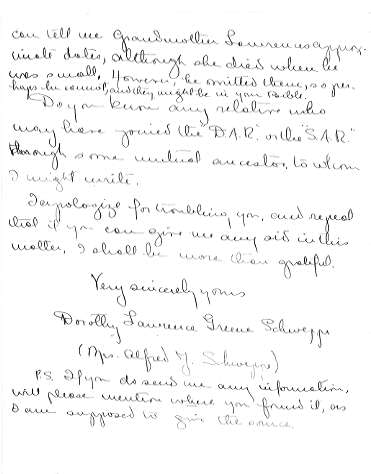 can tell me Grandmother Lawrence's approx-
imate dates, although she died when he
was small. However, he omitted them, so per-
haps he cannot, and they might be in your Bible.
Do you know any relative who
may have joined the "D.A.R." or the "S.A.R."
through some mutual ancestor, to whom
I might write.
I apologize for troubling you, and repeat
that if you can give me any aid in this
matter, I shall be more than grateful.
Very sincerely yours
Dorothy Lawrence Greene Schweppe
(Mrs. Alfred J. Schweppe)
P.S. If you do send me any information,
will please mention where you found it, as
I am supposed to give the source.